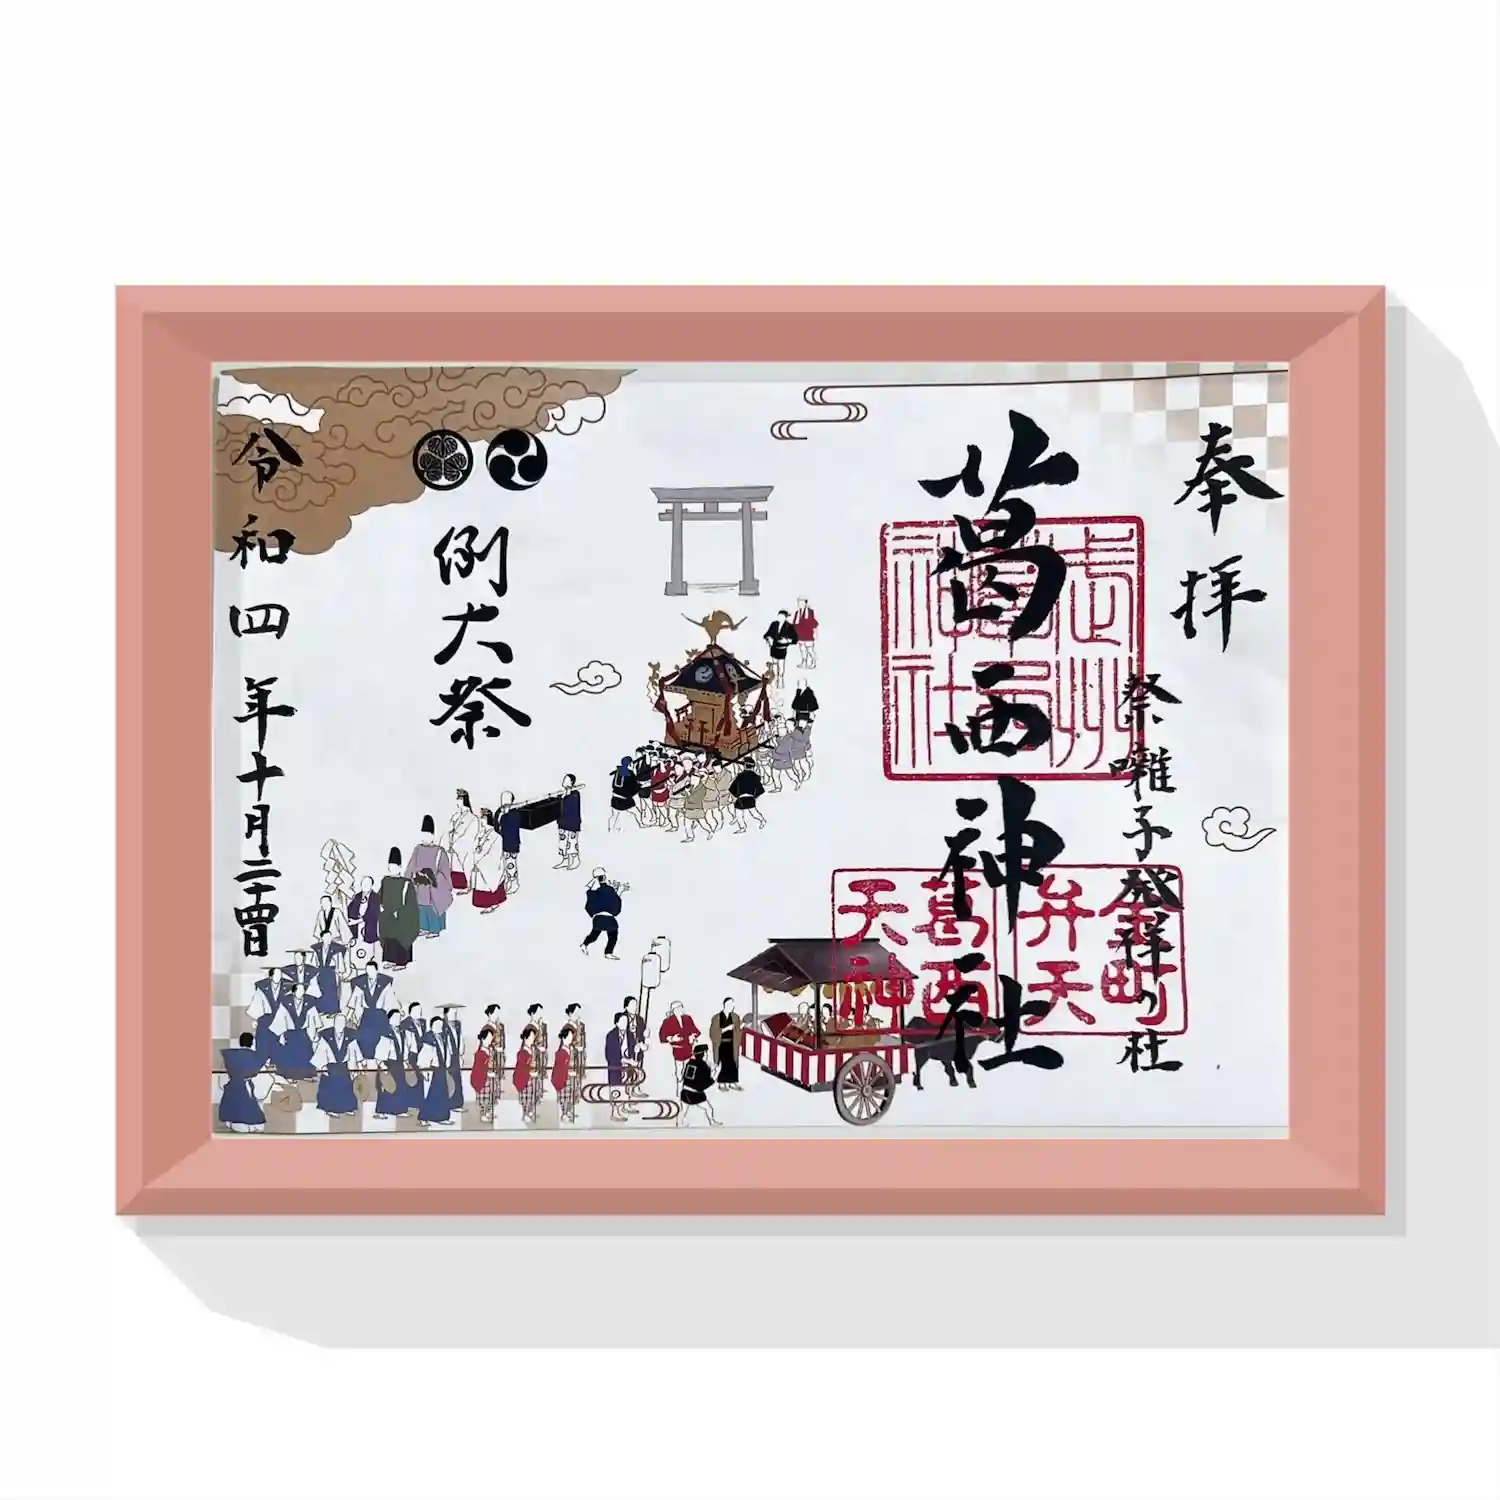 奉拝
祭囃子発祥の社
葛西神社
例大祭
令和四年十月二十四日
金町
弁天
葛西
天神